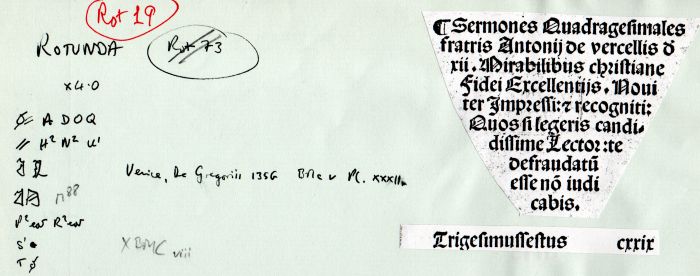 Rot 19
ROTUNDA Rot 73
x4.0
A D O Q
H² N² U¹
Venice, De Gregoriis 135G BMC v Pl. xxxii
M⁸⁸
P² R²
S¹
X BMC viii
T
¶ Sermones Quadragesimales
fratris Antonij de vercellis đ
xii. Mirabilibus christiane
Fidei Excellentijs. Noui
ter Impressi: ⁊ recogniti:
Quos si legeris candi-
dissime Lector: te
defraudatū
esse nō iudi
cabis.
Trigesimussestus cxxix